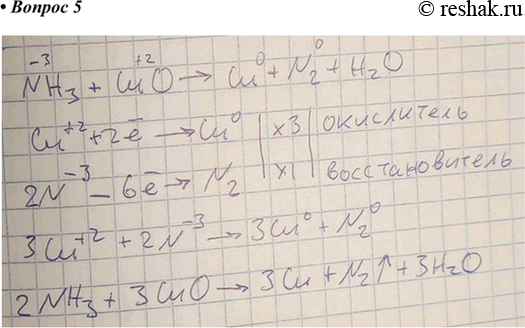 • Вопрос 5
© reshak.ru
-3 +2 0 0
NH₃ + CuO → Cu + N₂ + H₂O
Cu⁺² + 2ē → Cu⁰ | x3 | окислитель
2N⁻³ - 6ē → N₂ | x1 | восстановитель
3Cu⁺² + 2N⁻³ → 3Cu⁰ + N₂⁰
2NH₃ + 3CuO → 3Cu + N₂↑ + 3H₂O